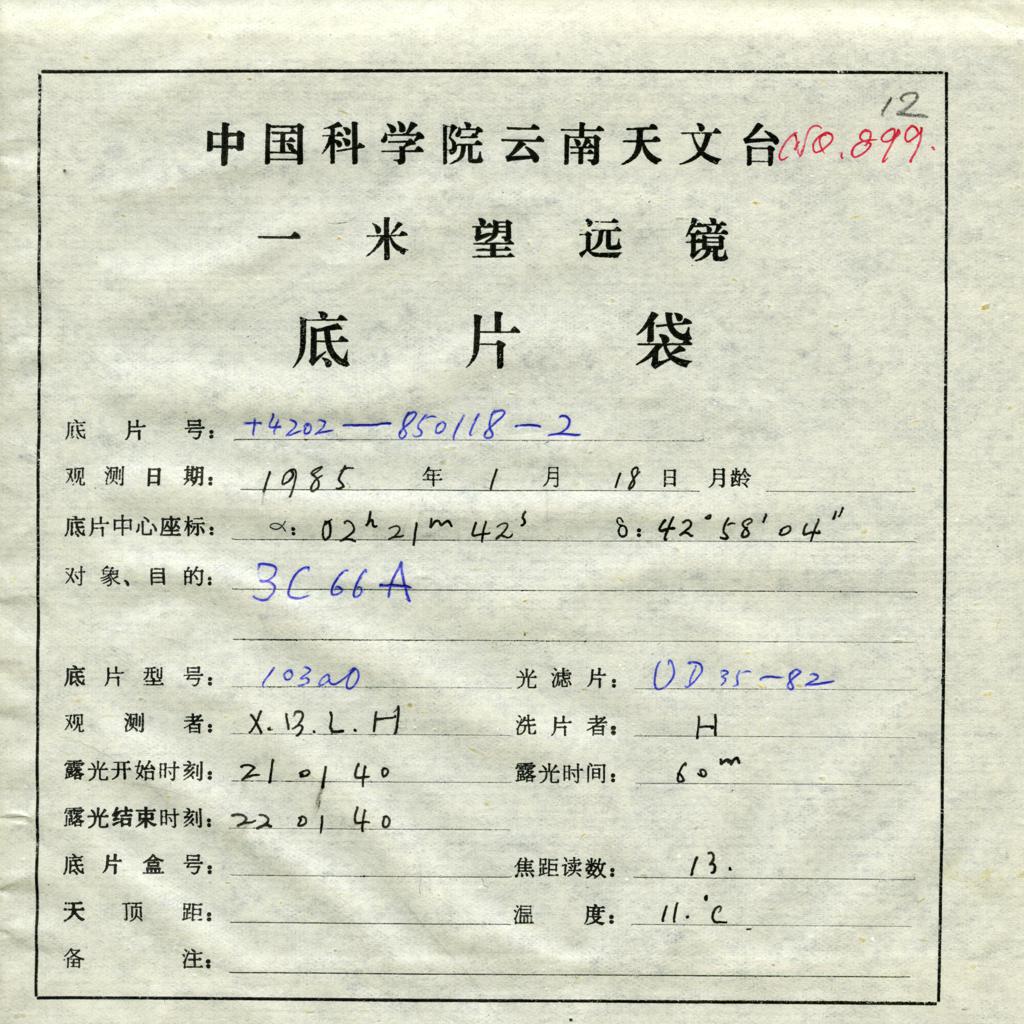 12
中国科学院云南天文台 NO.899.
一米望远镜
底片袋
底片号: +4202—850118-2
观测日期: 1985年1月18日 月龄
底片中心座标: α: 02h 21m 42s δ: 42°58′04″
对象、目的: 3C66A
底片型号: 103aO 光滤片: UD35-82
观测者: X.B.L.H 洗片者: H
露光开始时刻: 21 01 40 露光时间: 60m
露光结束时刻: 22 01 40
底片盒号: 焦距读数: 13.
天顶距: 温度: 11.°C
备注: